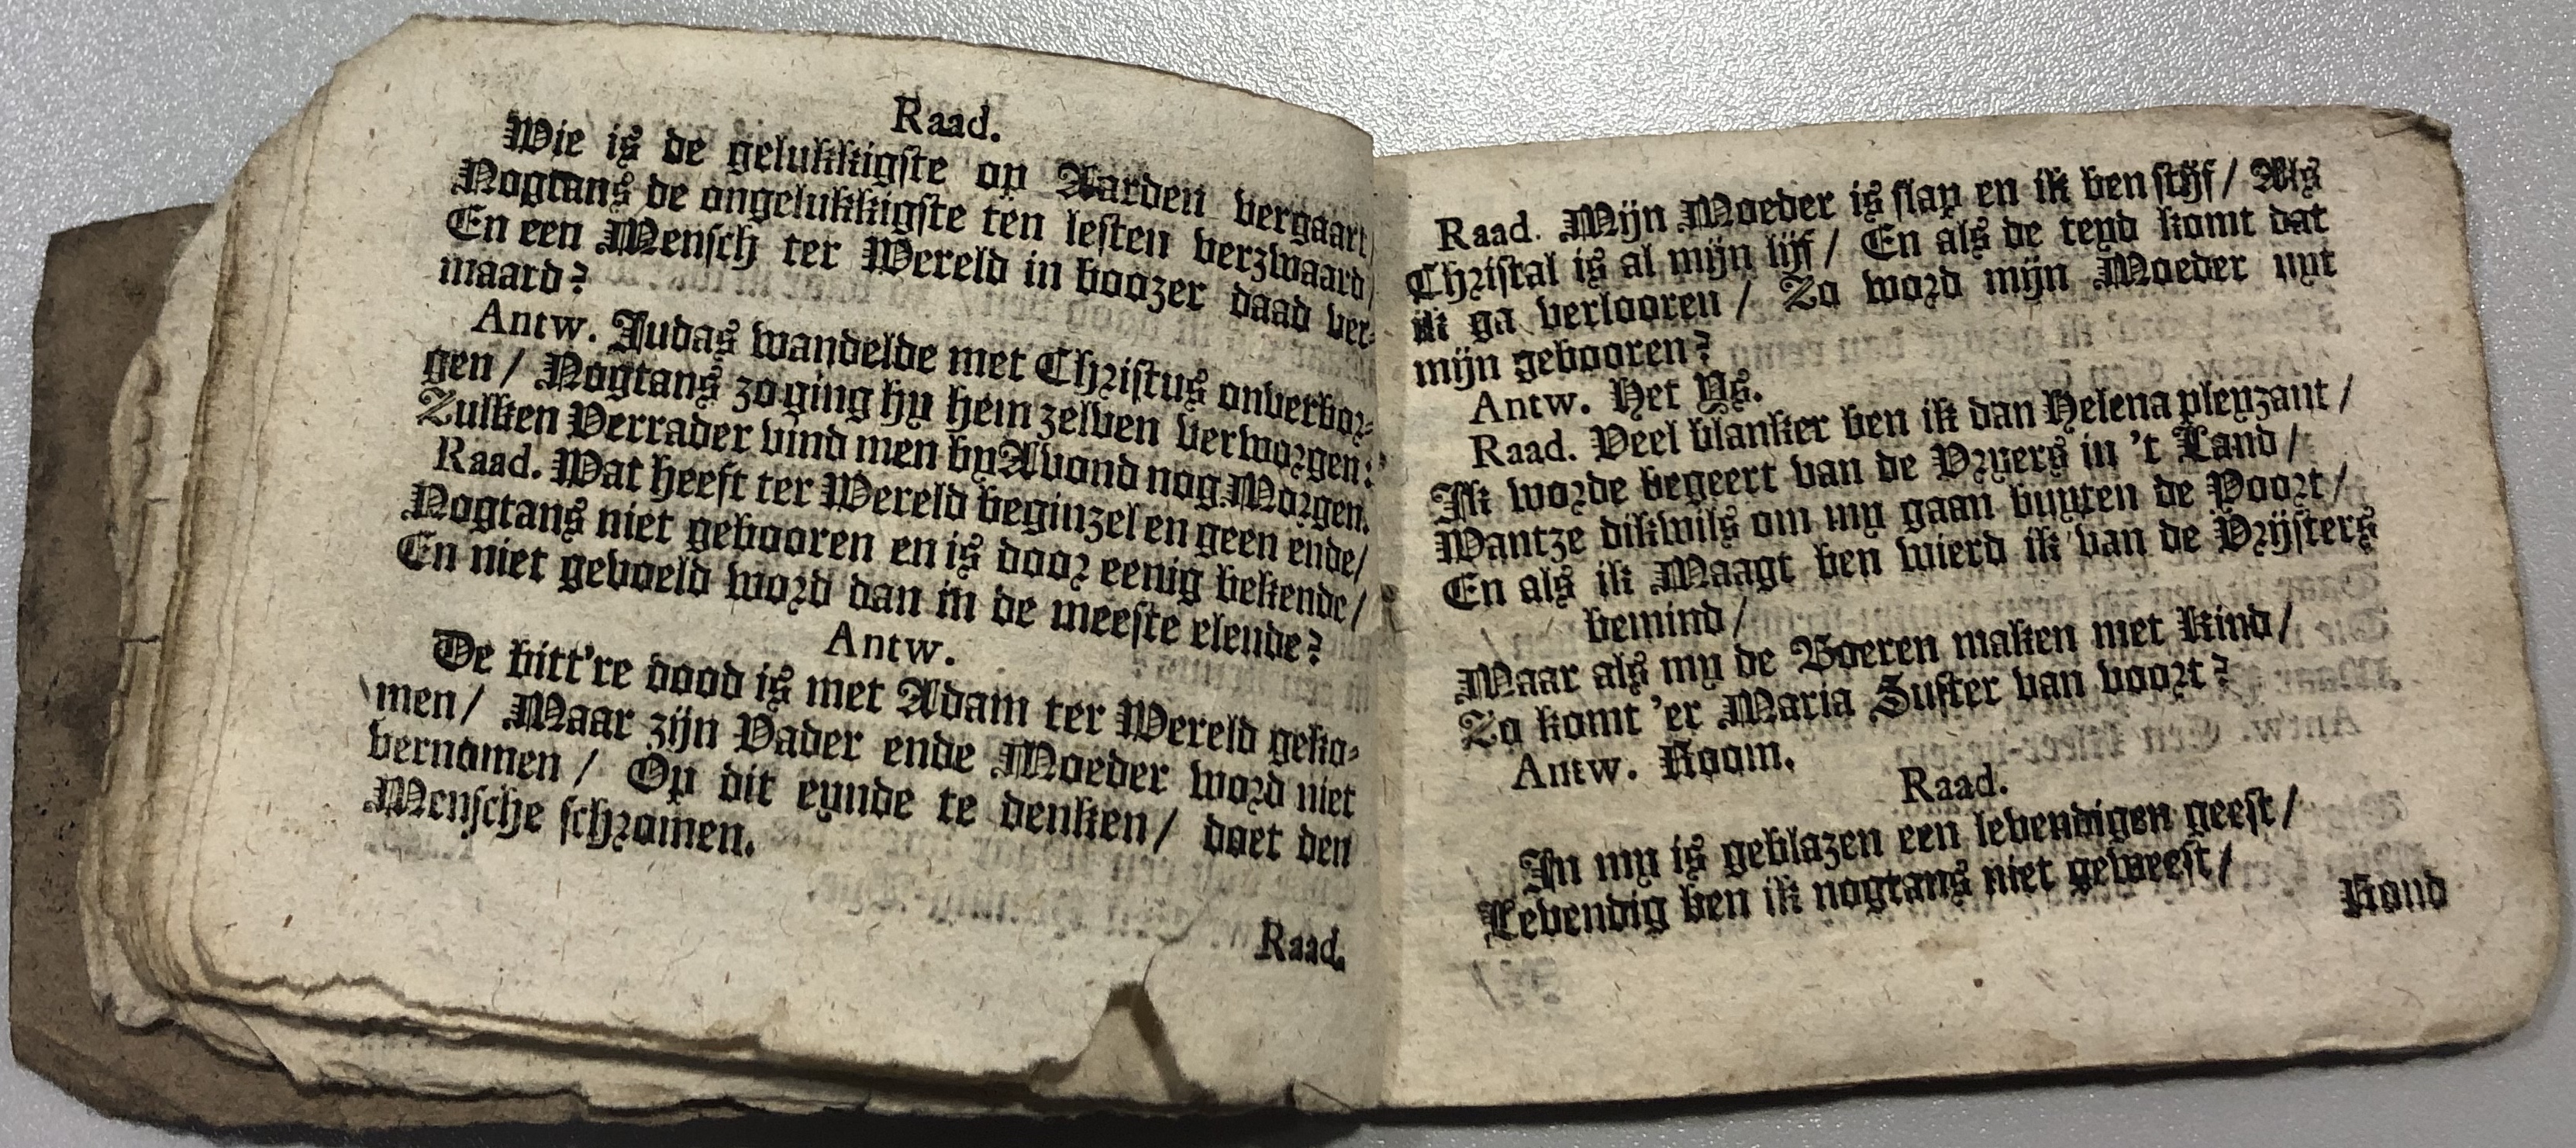 Raad.
Wie is de gelukkigste op Aarden vergaart/
Nogtans de ongelukkigste ten lesten verzwaard/
En een Mensch ter Wereld in boozer daad ver-
maard?
Antw. Judas wandelde met Christus onverbor-
gen/ Nogtans zo ging hy hem zelven verworgen:
Zulken Verrader vind men by Avond nog Morgen.
Raad. Wat heeft ter Wereld beginzel en geen ende/
Nogtans niet gebooren en is door eenig bekende/
En niet gevoeld word dan in de meeste elende?
Antw.
De bitt're dood is met Adam ter Wereld geko-
men/ Maar zijn Vader ende Moeder word niet
vernomen/ Op dit eynde te denken/ doet den
Mensche schromen.
Raad.
Raad. Mijn Moeder is slap en ik ben stijf/ Als
Christal is al mijn lijf/ En als de teyd komt dat
ik ga verlooren/ Zo word mijn Moeder uyt
mijn gebooren?
Antw. Het Ys.
Raad. Veel blanker ben ik dan Helena pleyzant/
Ik worde begeert van de Vryers in 't Land/
Wantze dikwils om my gaan buyten de Poort/
En als ik Maagt ben wierd ik van de Vrijsters
bemind/
Maar als my de Boeren maken met kind/
Zo komt 'er Maria Suster van voort?
Antw. Room.
Raad.
In my is geblazen een levendigen geest/
Levendig ben ik nogtans niet geweest/
Rond